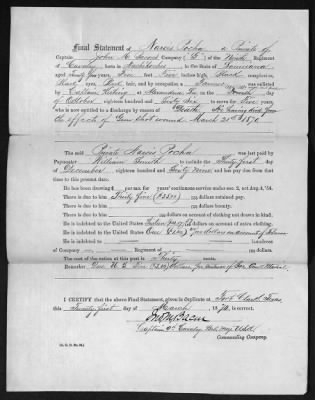 Final Statement of Narcis Rocha a Private of
Captain John M. Bacon's Company (G) of the Ninth Regiment
of Cavalry, born in Natchitoches in the State of Louisiana
aged Twenty four years, Five feet Five inches high, Black complexion,
Black eyes, Black hair, and by occupation a Farmer was
by Captain at Alexandria La on the day
of October eighteen hundred and Sixty Six to serve Five years,
who is now entitled to a discharge by reason of Death. He having died from
the effects of Gun shot wound March 20th 1870
The said Private Narcis Rocha was last paid by
Paymaster William Smith to include the Thirty first day of
December eighteen hundred and Sixty nine and has pay due from that
time to this present date.
He has been drawing $ per mo. for years' continuous service under sec. 2, act Aug. 4, '54.
There is due to him Thirty five ($35.00) dollars retained pay.
There is due to him dollars on account of bounty.
There is due to him dollars on account of clothing not drawn in kind.
He is indebted to the United States dollars on account of extra clothing.
He is indebted to the United States dollars on account of
He is indebted to Laundress
of Company Regiment of dollars.
The cost of the ration at this post is Thirty cents.
Remarks:
I CERTIFY that the above Final Statement, given in duplicate at Fort Clark, Texas,
this Twenty first day of March 1870, is correct.
Jno M Bacon
Captain 9th Cavalry Bvt. Maj. U.S.A.
Commanding Company.